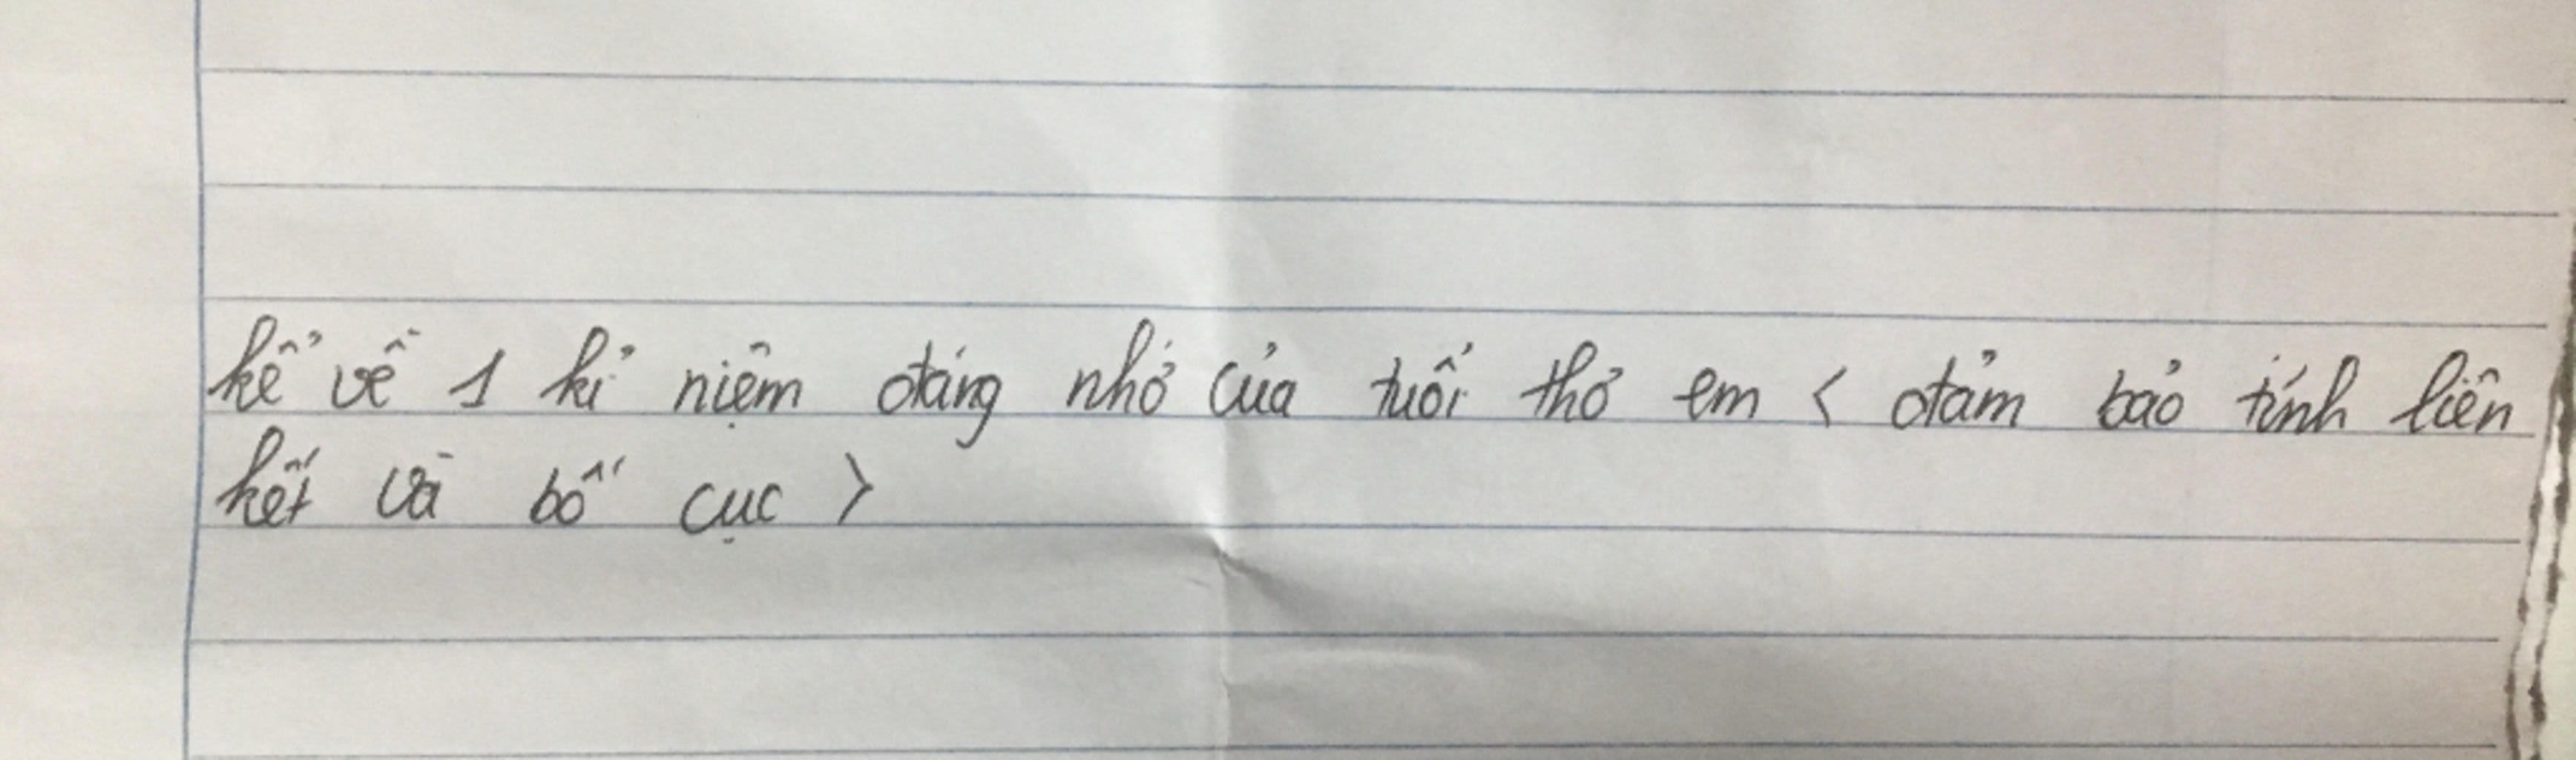 kể về 1 kỉ niệm đáng nhớ của tuổi thơ em < đảm bảo tính liên
kết và bố cục >